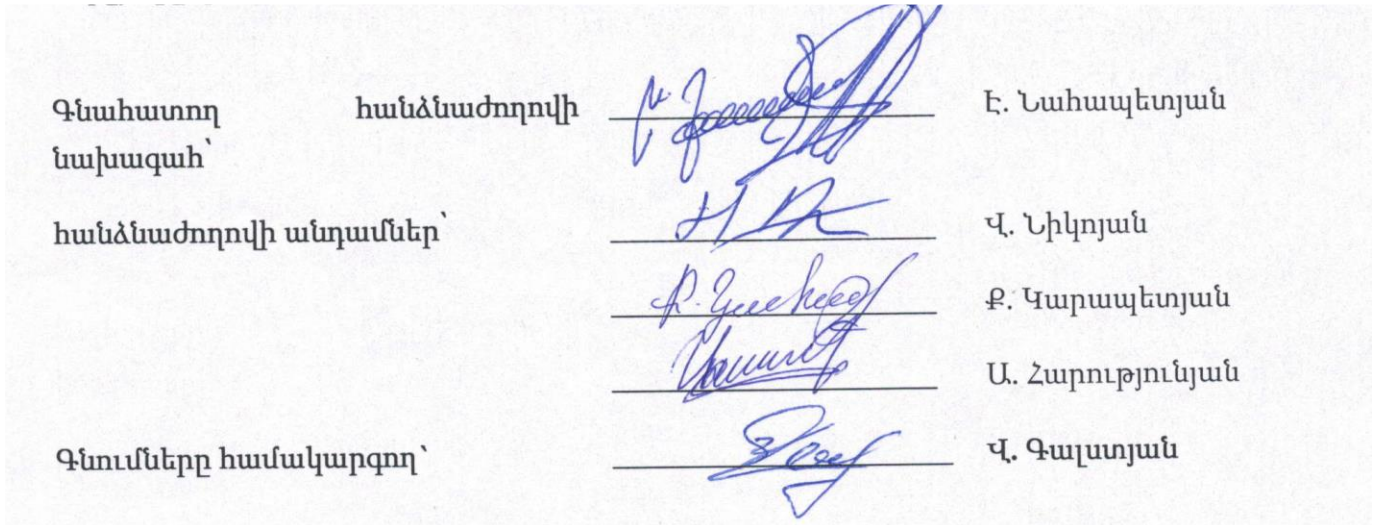 Գնահատող հանձնաժողովի Է. Նահապետյան
նախագահ՝
հանձնաժողովի անդամներ՝ Վ. Նիկոյան
Ք. Կարապետյան
Ա. Հարությունյան
Գնումները համակարգող՝ Վ. Գալստյան